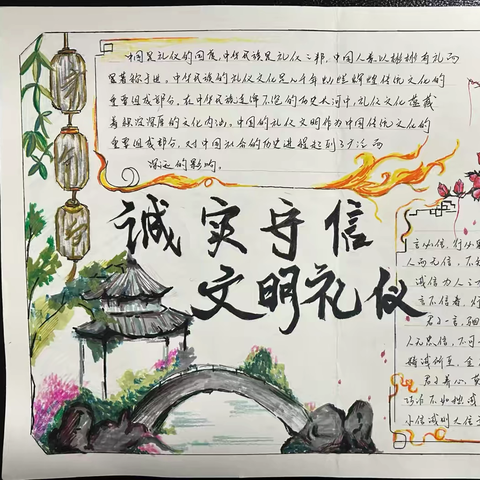 中国是礼仪的国度,中华民族是礼仪之邦,中国人素以彬彬有礼而
著称于世,中华民族的礼仪文化是几千年灿烂辉煌传统文化的
重要组成部分。在中华民族生浑不息的历史大河中,礼仪文化蕴藏
着极深厚的文化内涵,中国的礼仪文明作为中国传统文化的
重要组成部分,对中国社会的历史进程起到了广泛而
深远的影响。
诚实守信
文明礼仪
言必信,行必
人而无信,不知
诚信为人之
言不信者,行
君子一言,驷
人无忠信,不可
精诚所至,金
君子养心,莫
巧诈不如拙诚
小信诚则大信